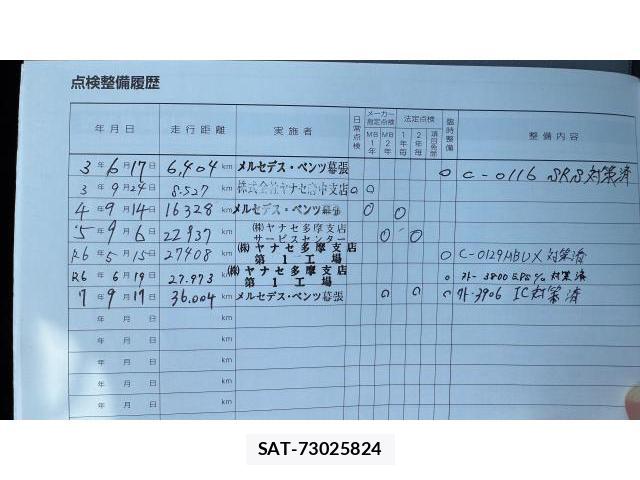 点検整備履歴
年月日 走行距離 実施者 日常点検 メーカー指定点検 法定点検 臨時整備 整備内容
MB1年 MB2年 1年毎 2年毎
3年6月17日 6,404km メルセデス・ベンツ幕張 ○ C-0116 SRS対策済
3年9月24日 8.527km 株式会社ヤナセ府中支店 ○ ○
4年9月14日 16328km メルセデス・ベンツ幕張 ○ ○
5年9月6日 22937km ㈱ヤナセ多摩支店 サービスセンター ○ ○
R6年5月15日 27408km ㈱ヤナセ多摩支店 第1工場 ○ C-0129 MBUX対策済
R6年6月19日 27.973km ㈱ヤナセ多摩支店 第1工場 ○ 外-3800 対策済
7年9月17日 36.004km メルセデス・ベンツ幕張 ○ ○ ○ 外-3906 IC対策済
年月日 km
年月日 km
年月日 km
年月日 km
年月日 km
SAT-73025824